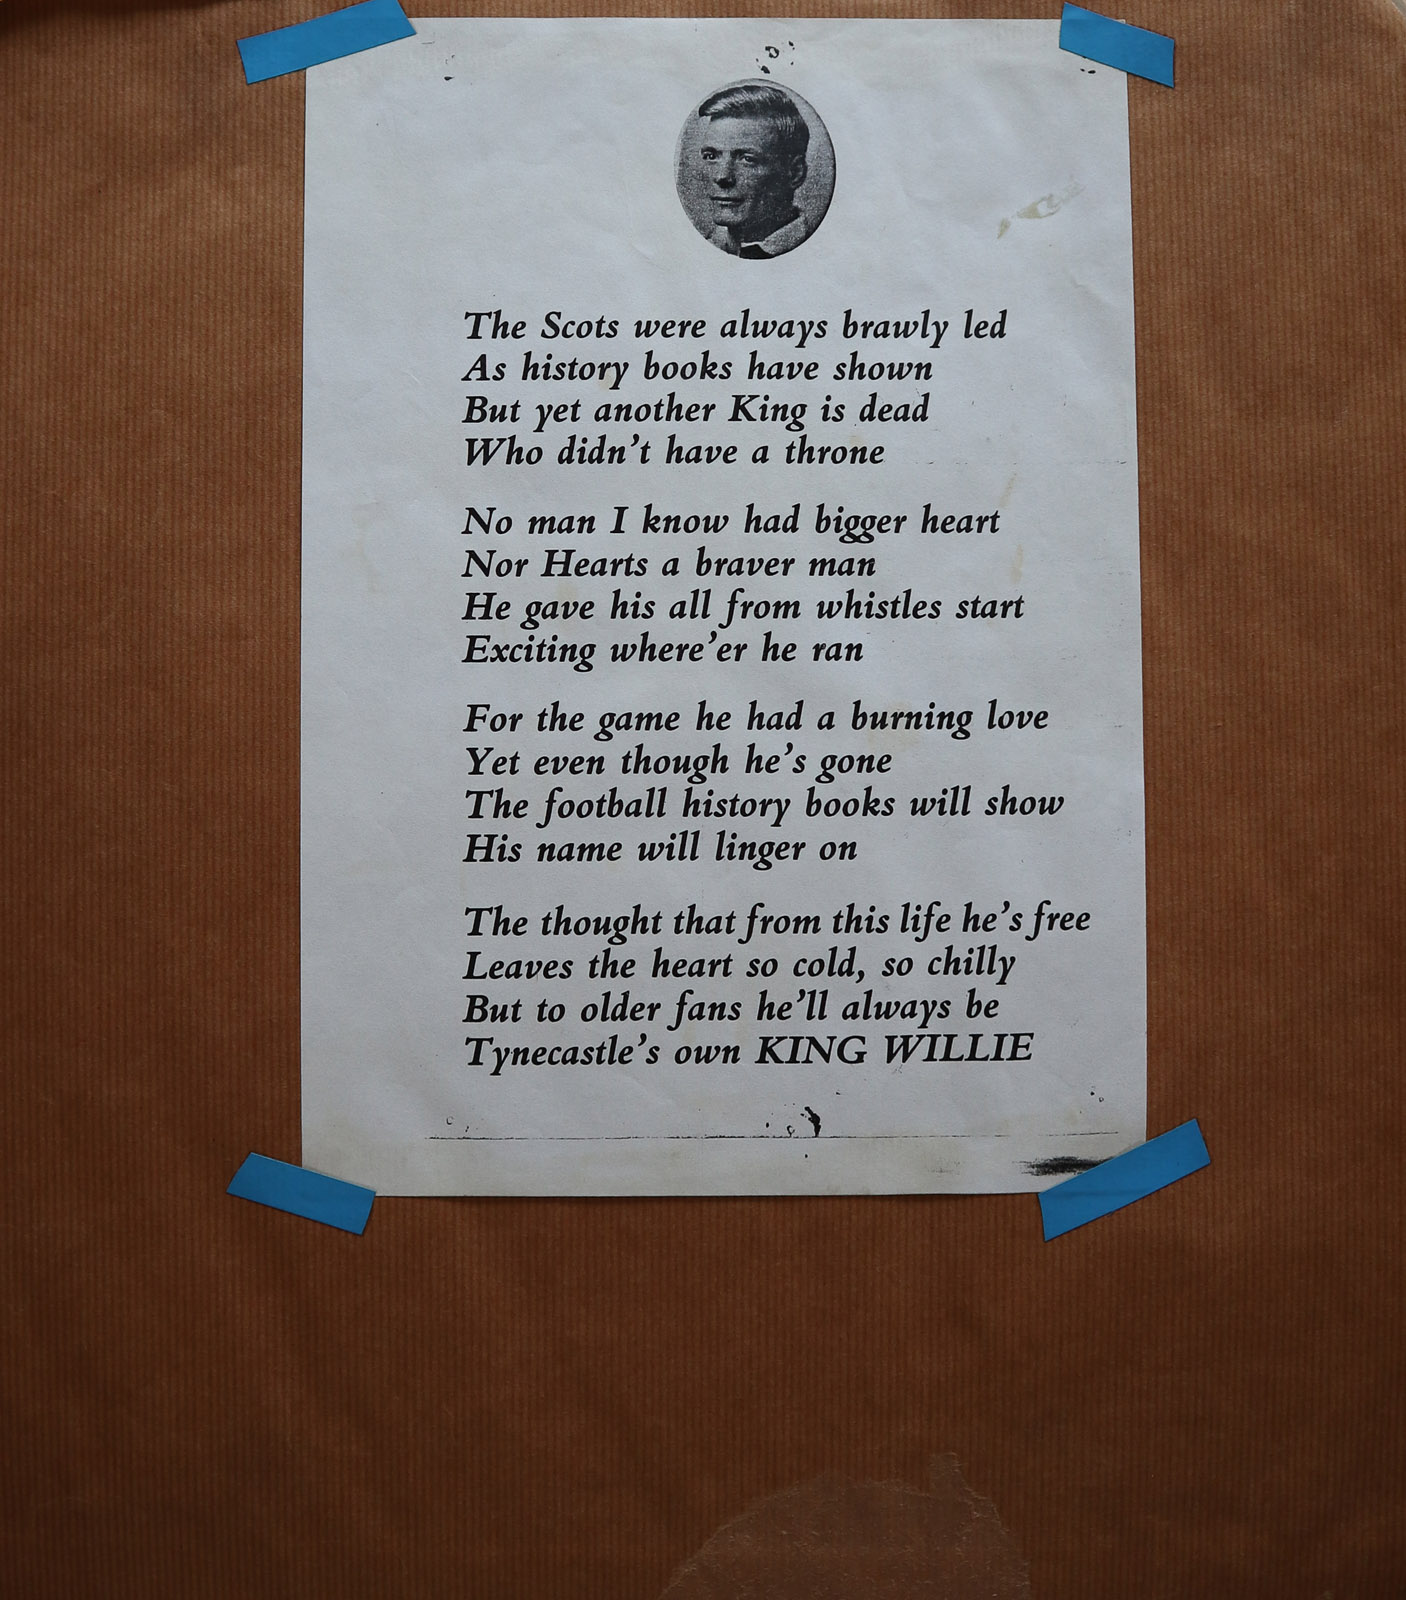 The Scots were always brawly led
As history books have shown
But yet another King is dead
Who didn't have a throne
No man I know had bigger heart
Nor Hearts a braver man
He gave his all from whistles start
Exciting where'er he ran
For the game he had a burning love
Yet even though he's gone
The football history books will show
His name will linger on
The thought that from this life he's free
Leaves the heart so cold, so chilly
But to older fans he'll always be
Tynecastle's own KING WILLIE